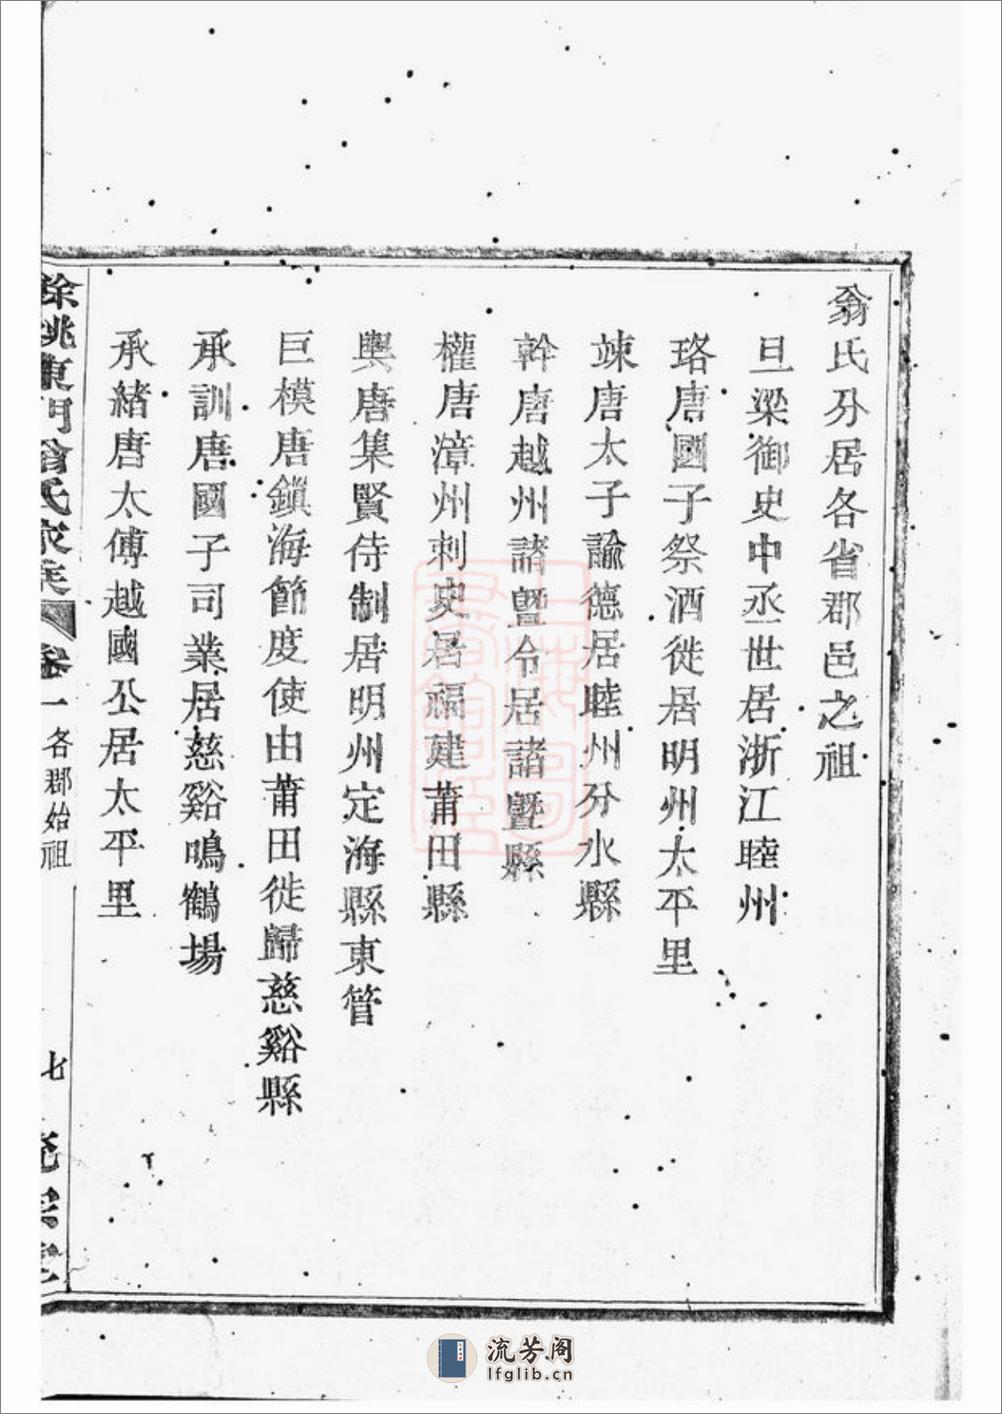 翁氏分居各省郡邑之祖
旦梁御史中丞世居浙江睦州
珞唐國子祭酒徙居明州太平里
竦唐太子諭德居睦州分水縣
幹唐越州諸暨令居諸暨縣
權唐漳州刺史居福建莆田縣
興唐集賢侍制居明州定海縣東管
巨模唐鎮海節度使由莆田徙歸慈谿縣
承訓唐國子司業居慈谿鳴鶴場
承緒唐太傅越國公居太平里
餘姚東門翁氏家乘 卷一 各郡始祖 七
流芳阁
lfglib.cn